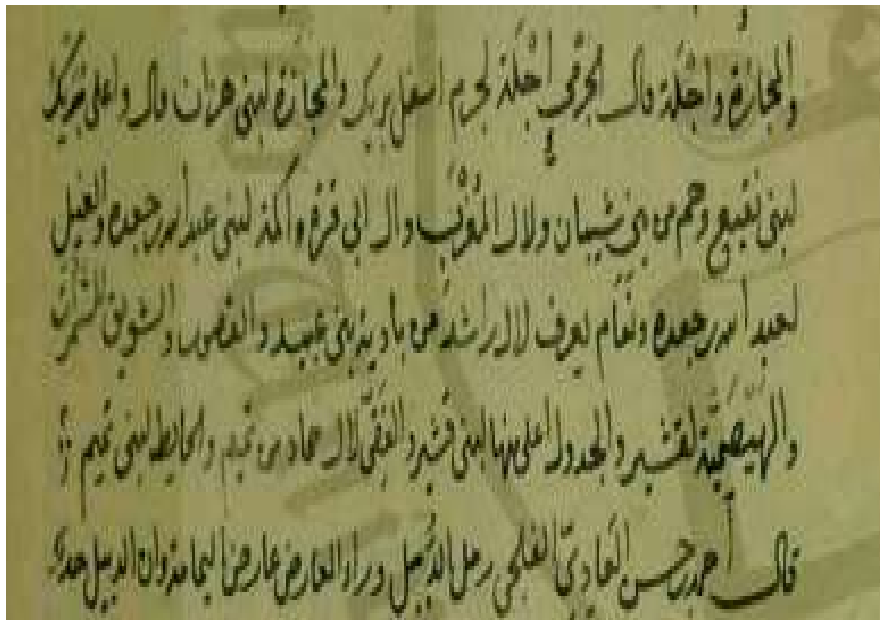 والمجازة واجلة قال الجرمي إجلة لجرم اسفل بريك والمجازة لبني هزان قال واعلى بريك
لبني نفيع وهم من بني شيبان ولال المغرب وال ابي قرة واكمة لبني عبد الله بن جعده والغيل
لعبد الله بن جعده ونعام يعرف لال راشد من بادية بني عبيد والقصور والشويق
والهيصمية لقشير والجدول اعلى منها لبني قشير والفقي لال حماد من تميم والحايط لبني تميم
قال أحمد بن حسن العادي الفلجي رمل الدبيل وراء العارض عارض اليمامة وان الدبيل